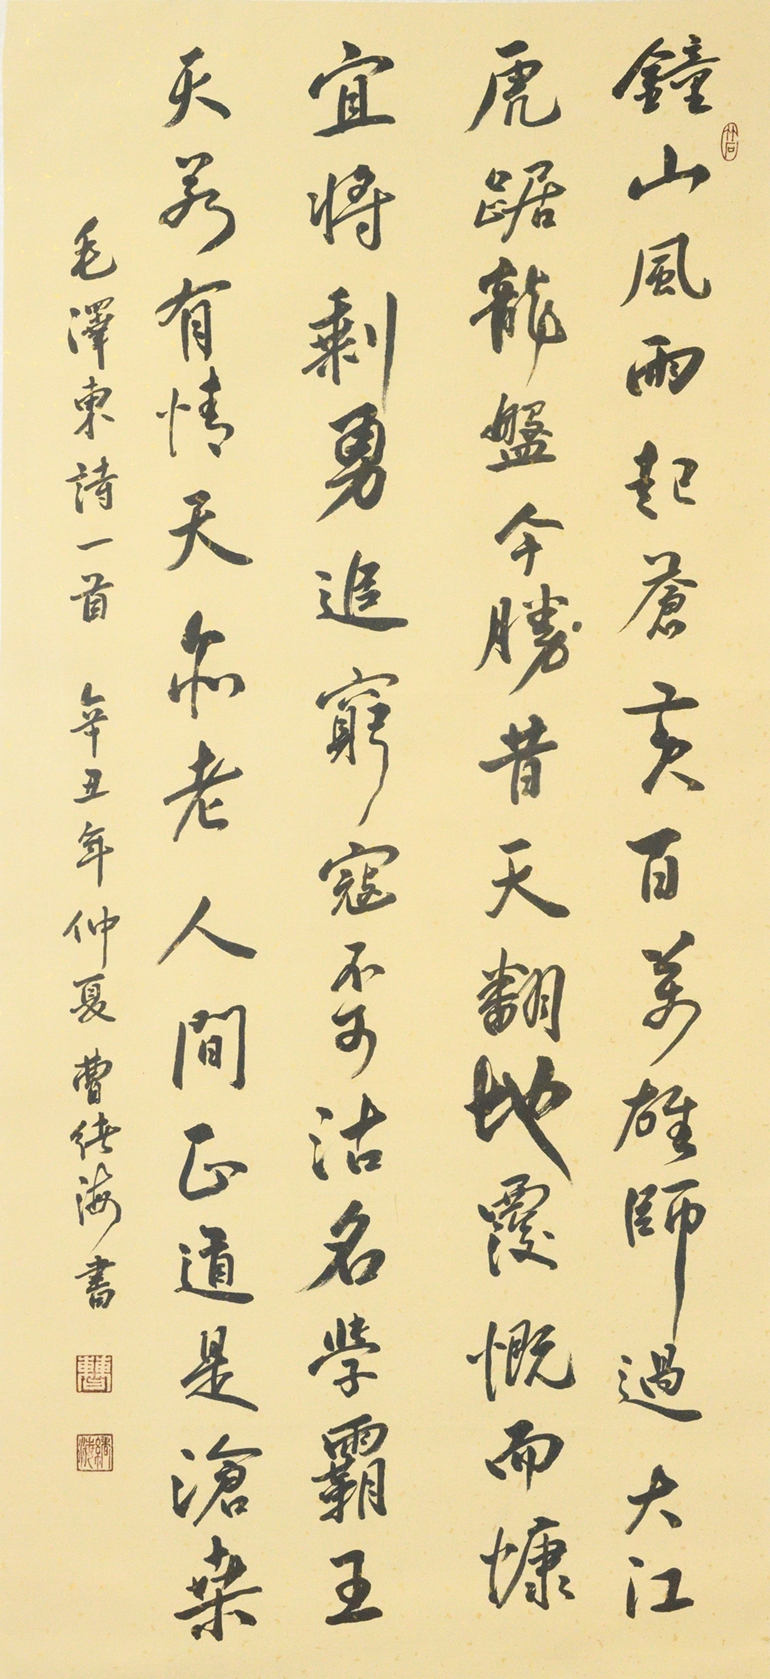 鐘山風雨起蒼黃百萬雄師過大江
虎踞龍盤今勝昔天翻地覆慨而慷
宜將剩勇追窮寇不可沽名學霸王
天若有情天亦老人間正道是滄桑
毛澤東詩一首 辛丑年仲夏曹緒海書